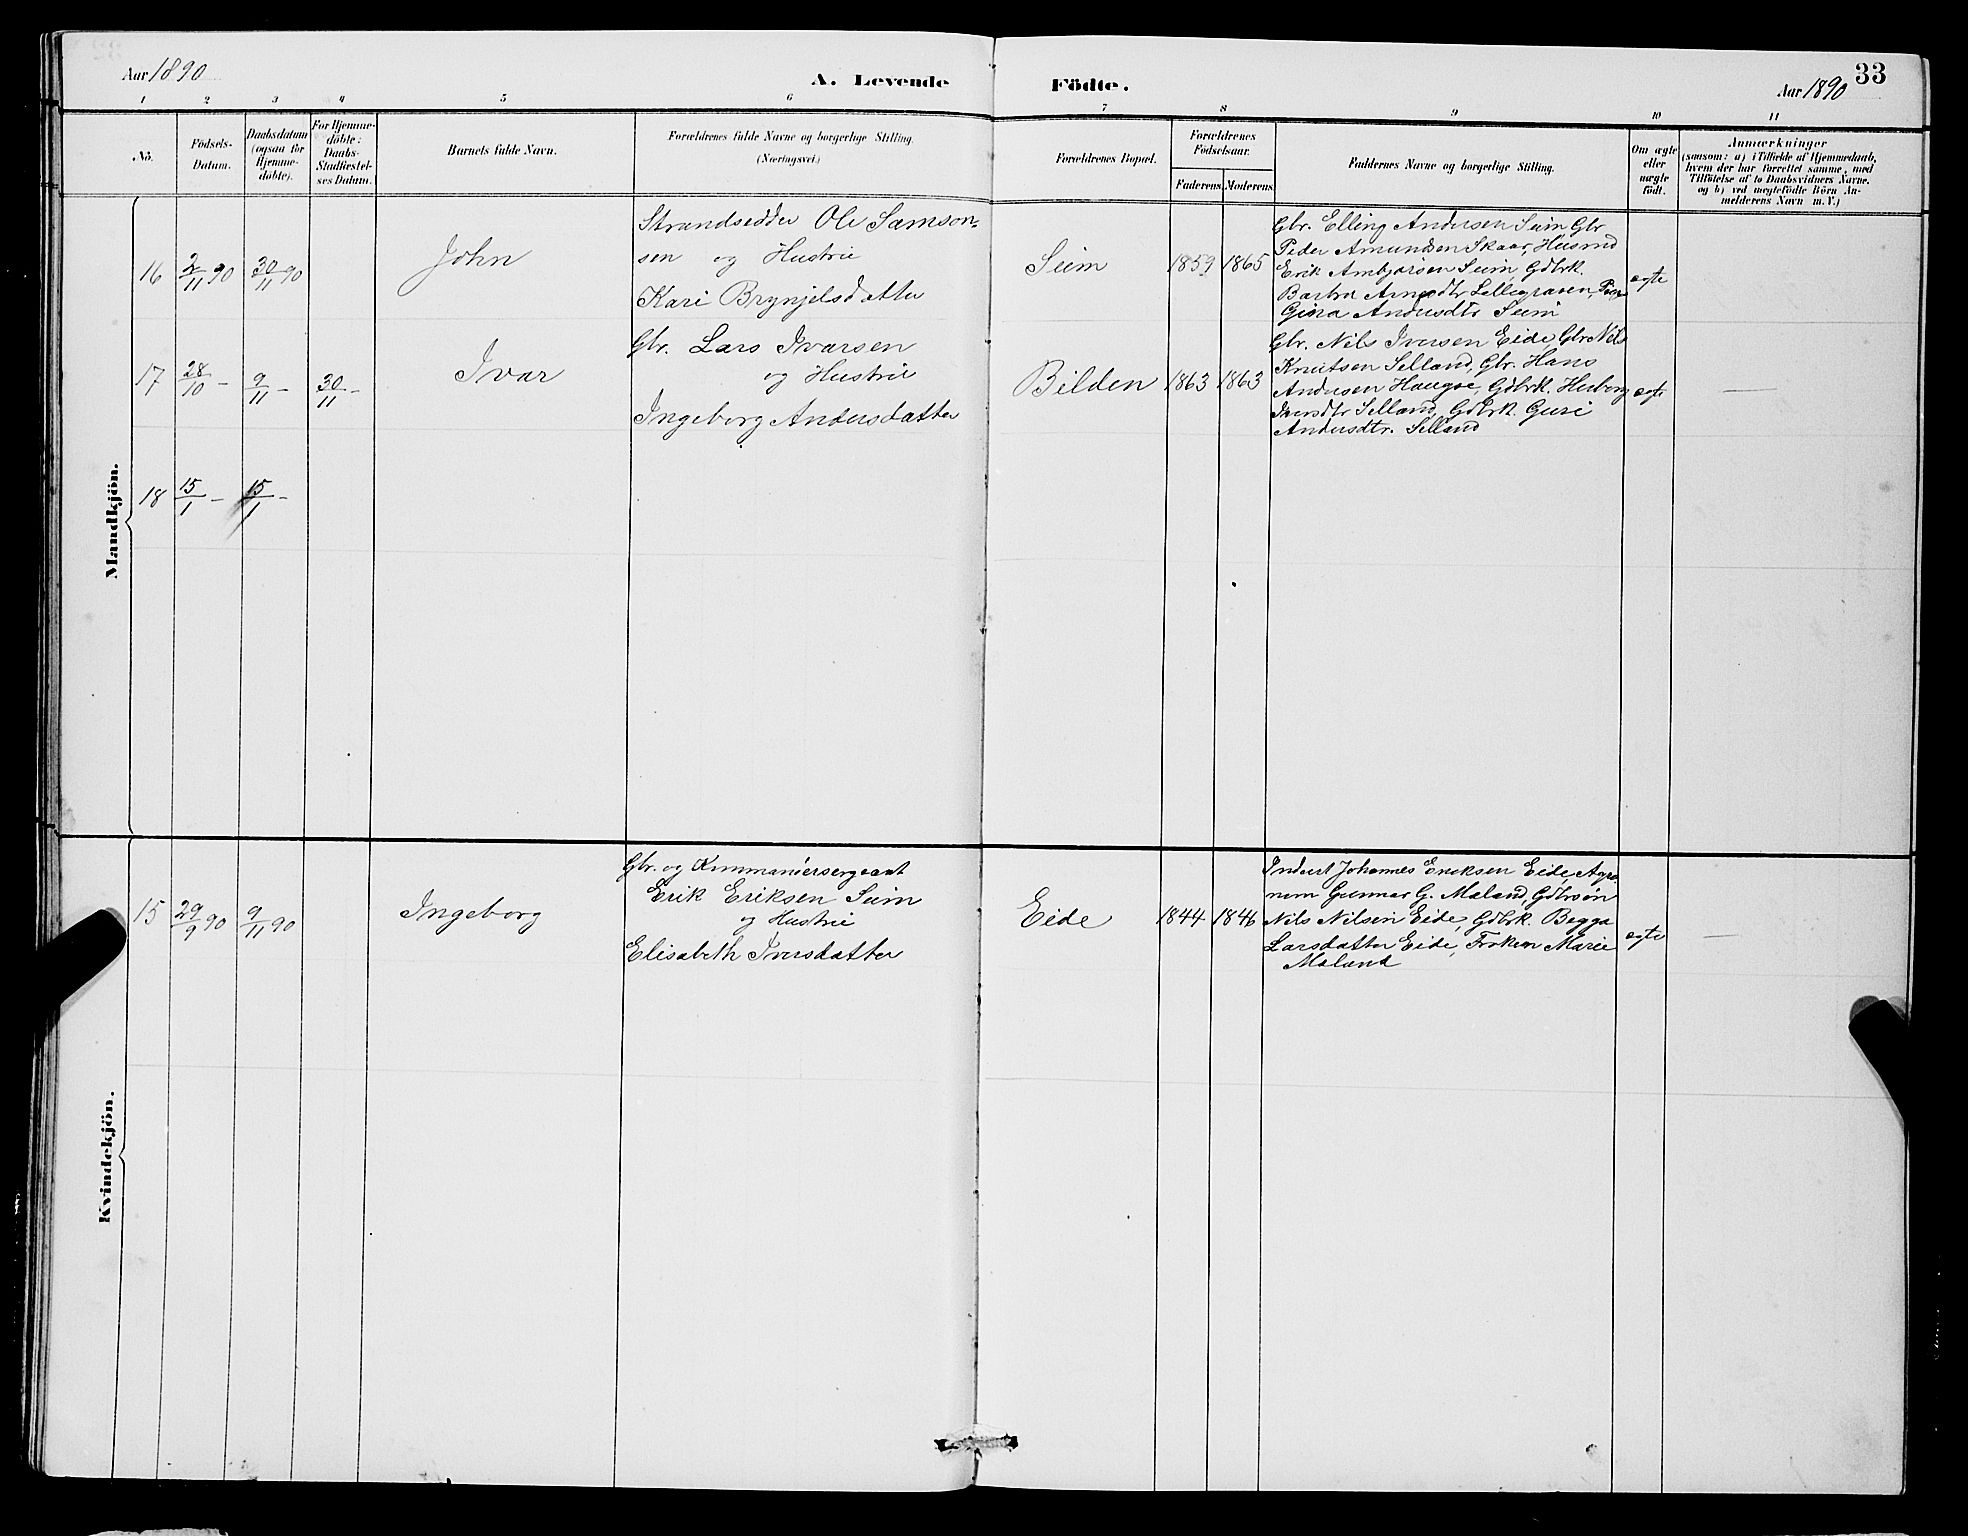 Aar 1890
A. Levende Födte.
Aar 1890
33
1 2 3 4 5 6 7 8 9 10 11
No.
Födsels-
Datum.
Daabsdatum
(ogsaa for
Hjemme-
döbte).
For Hjemme-
döbte:
Daabs-
Stadfæstel-
ses Datum.
Barnets fulde Navn.
Forældrenes fulde Navne og borgerlige Stilling.
(Næringsvei.)
Forældrenes Bopæl.
Forældrenes
Födselsaar.
Faderens. Moderens.
Faddernes Navne og borgerlige Stilling.
Om ægte
eller
uægte
födt.
Anmærkninger
(saasom: a) i Tilfælde af Hjemmedaab,
hvem der har forrettet samme, med
Tilföielse af to Daabsvidners Navne,
og b) ved uægtefödte Börn An-
melderens Navn m. V.)
Mandkjön.
16 2/11 90 30/11 90
John
Strandsedder Ole Samson-
sen og Hustru
Kari Brynjelsdatter
Seim
1859 1865
Gbr. Elling Andersen Seim Gbr
Peder Amundsen Skaar, Husmd
Erik Ambjørsen Seim, Gdbrk.
Barbra Arnesdtr Lellegraven,
Gina Andersdtr Seim
ægte
17 28/10 - 9/11 - 30/11 -
Ivar
Gbr. Lars Ivarsen
og Hustru
Ingeborg Andersdatter
Bilden
1863 1863
Gbr. Nils Iversen Eide, Gbr Nils
Knutsen Selland, Gbr. Hans
Andersen Haugse, Gdbrk. Herborg
Iversdtr Selland, Gdbrk. Guri
Andersdtr. Selland
ægte
—
18 15/1 - 15/1 -
Kvindekjön.
15 29/9 90 9/11 90
Ingeborg
Gbr. og Kommandersergeant
Erik Eriksen Seim
og Hustru
Elisabeth Iversdatter
Eide
1844 1846
Inderst Johannes Eriksen Eide, Agro-
nom Gunnar G. Maland, Gdbrsøn
Nils Nilsen Eide, Gdbrk. Begga
Larsdatter Eide, Frøken Marie
Maland
ægte
—